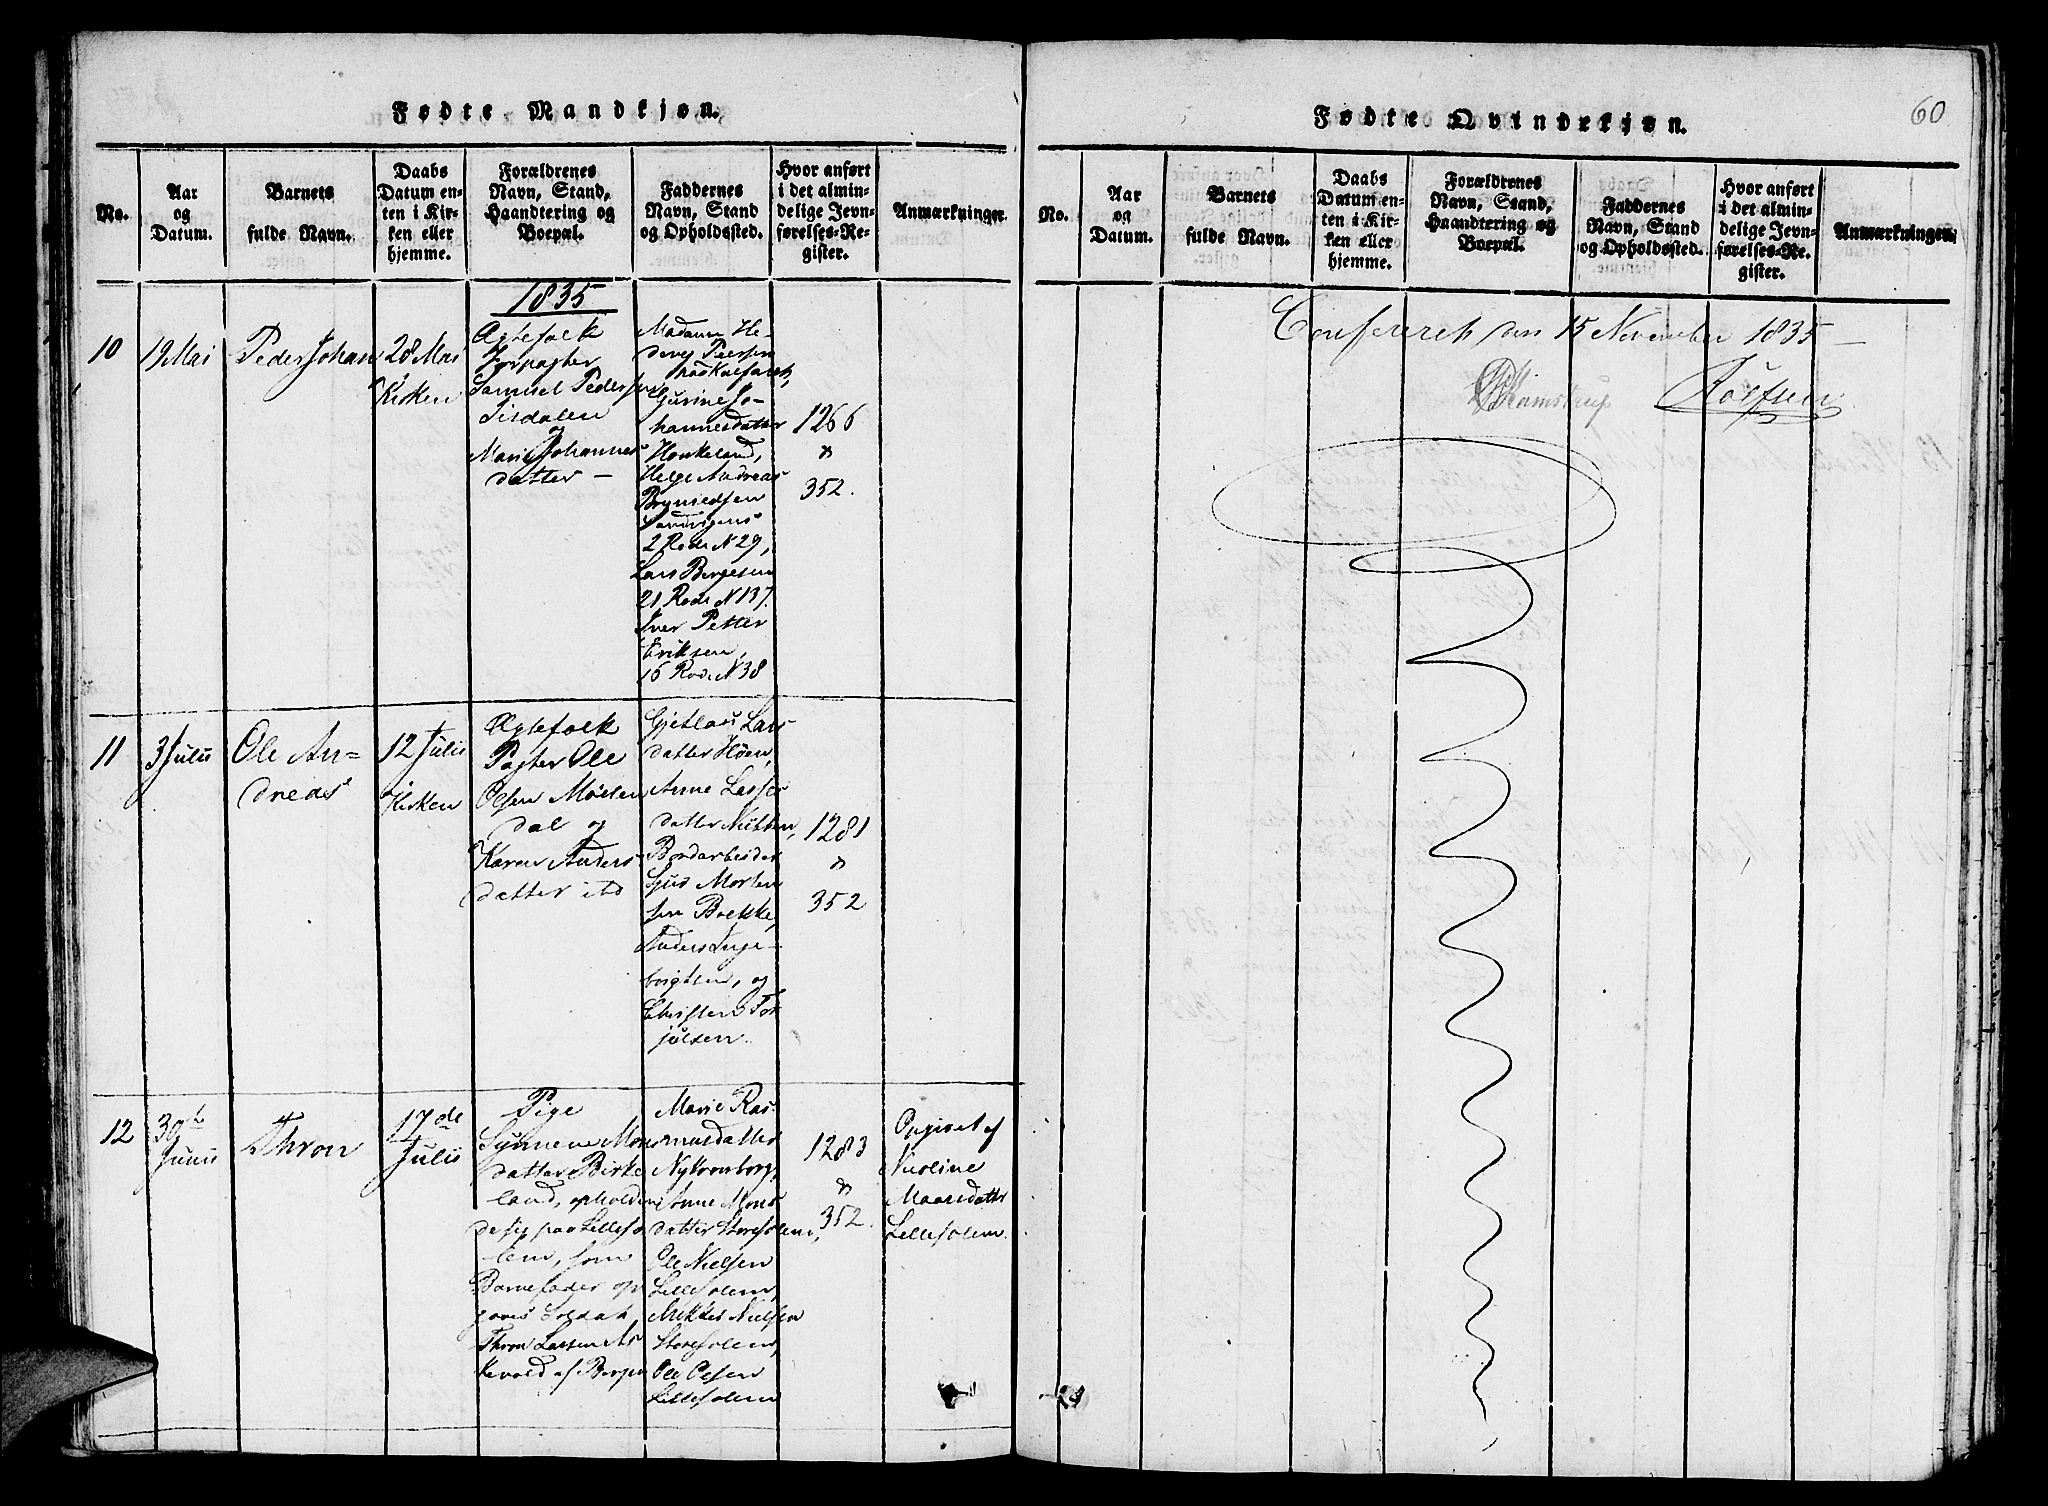 Fødte Mandkjøn.
No.
Aar
og
Datum.
Barnets
fulde Navn.
Daabs
Datum en-
ten i Kir-
ken eller
hjemme.
Forældrenes
Navn, Stand,
Haandtering og
Boepæl.
Faddernes
Navn, Stand
og Opholdssted.
Hvor anført
i det almin-
delige Jevn-
førelses-Re-
gister.
Anmærkninger.
1835
10
19 Mai
Peder Johan
28 Mai
Kirken
Ægtefolk
Forpagter
Samuel Pedersen
og
Marie Johannes
datter –
Madame He-
devg Petersen
paa Kalfaret,
Gurine Jo-
hannesdatter
Haukeland,
Helge Andreas
Brynildsen
2 Rode N 29,
Lars Børgesen
21 Rode N 137.
Iver Petter
Eriksen,
16 Rode N 38
1266
&
352.
11
3 Julii
Ole An=
dreas
12 Julii
Kirken
Ægtefolk
Pagter Ole
Olsen Møllen
dal og
Karen Anders
datter ibd
Lars
datter
Anne Lasse
datter
Bordarbeider
Sjud Morten
sen Boekke,
Anders Inge-
brigtsen, og
Christen Tor
julsen.
1281
&
352
12
30te
Junii
Thron
17de
Julii
Pige
Synneve Mons
datter Birke
land, opholden
de sig paa Lilleso
lem, som
Barnefader op
gives Soldat
Thron Lassen As
kevold af Bergen
Marie Ras
musdatter
Nykronborg,
Anne Mons
datter Storesolem,
Ole Nielsen
Lillesolem,
Mikkel Nielsen
Storesolem,
Ole Olsen
Lillesolem
1283
&
352.
Opgivet af
Nicoline
Monsdatter
Lillesolem.
Fødte Qvindekjøn.
60
No.
Aar
og
Datum.
Barnets
fulde Navn.
Daabs
Datum en-
ten i Kir-
ken eller
hjemme.
Forældrenes
Navn, Stand,
Haandtering og
Boepæl.
Faddernes
Navn, Stand
og Opholdssted.
Hvor anført
i det almin-
delige Jevn-
førelses-Re-
gister.
Anmærkninger.
Confereret den 15 November 1835 –